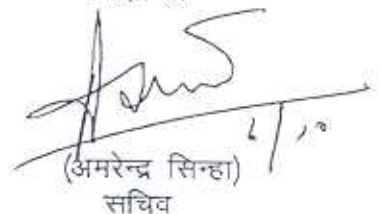 6/10
(अमरेन्द्र सिन्हा)
सचिव